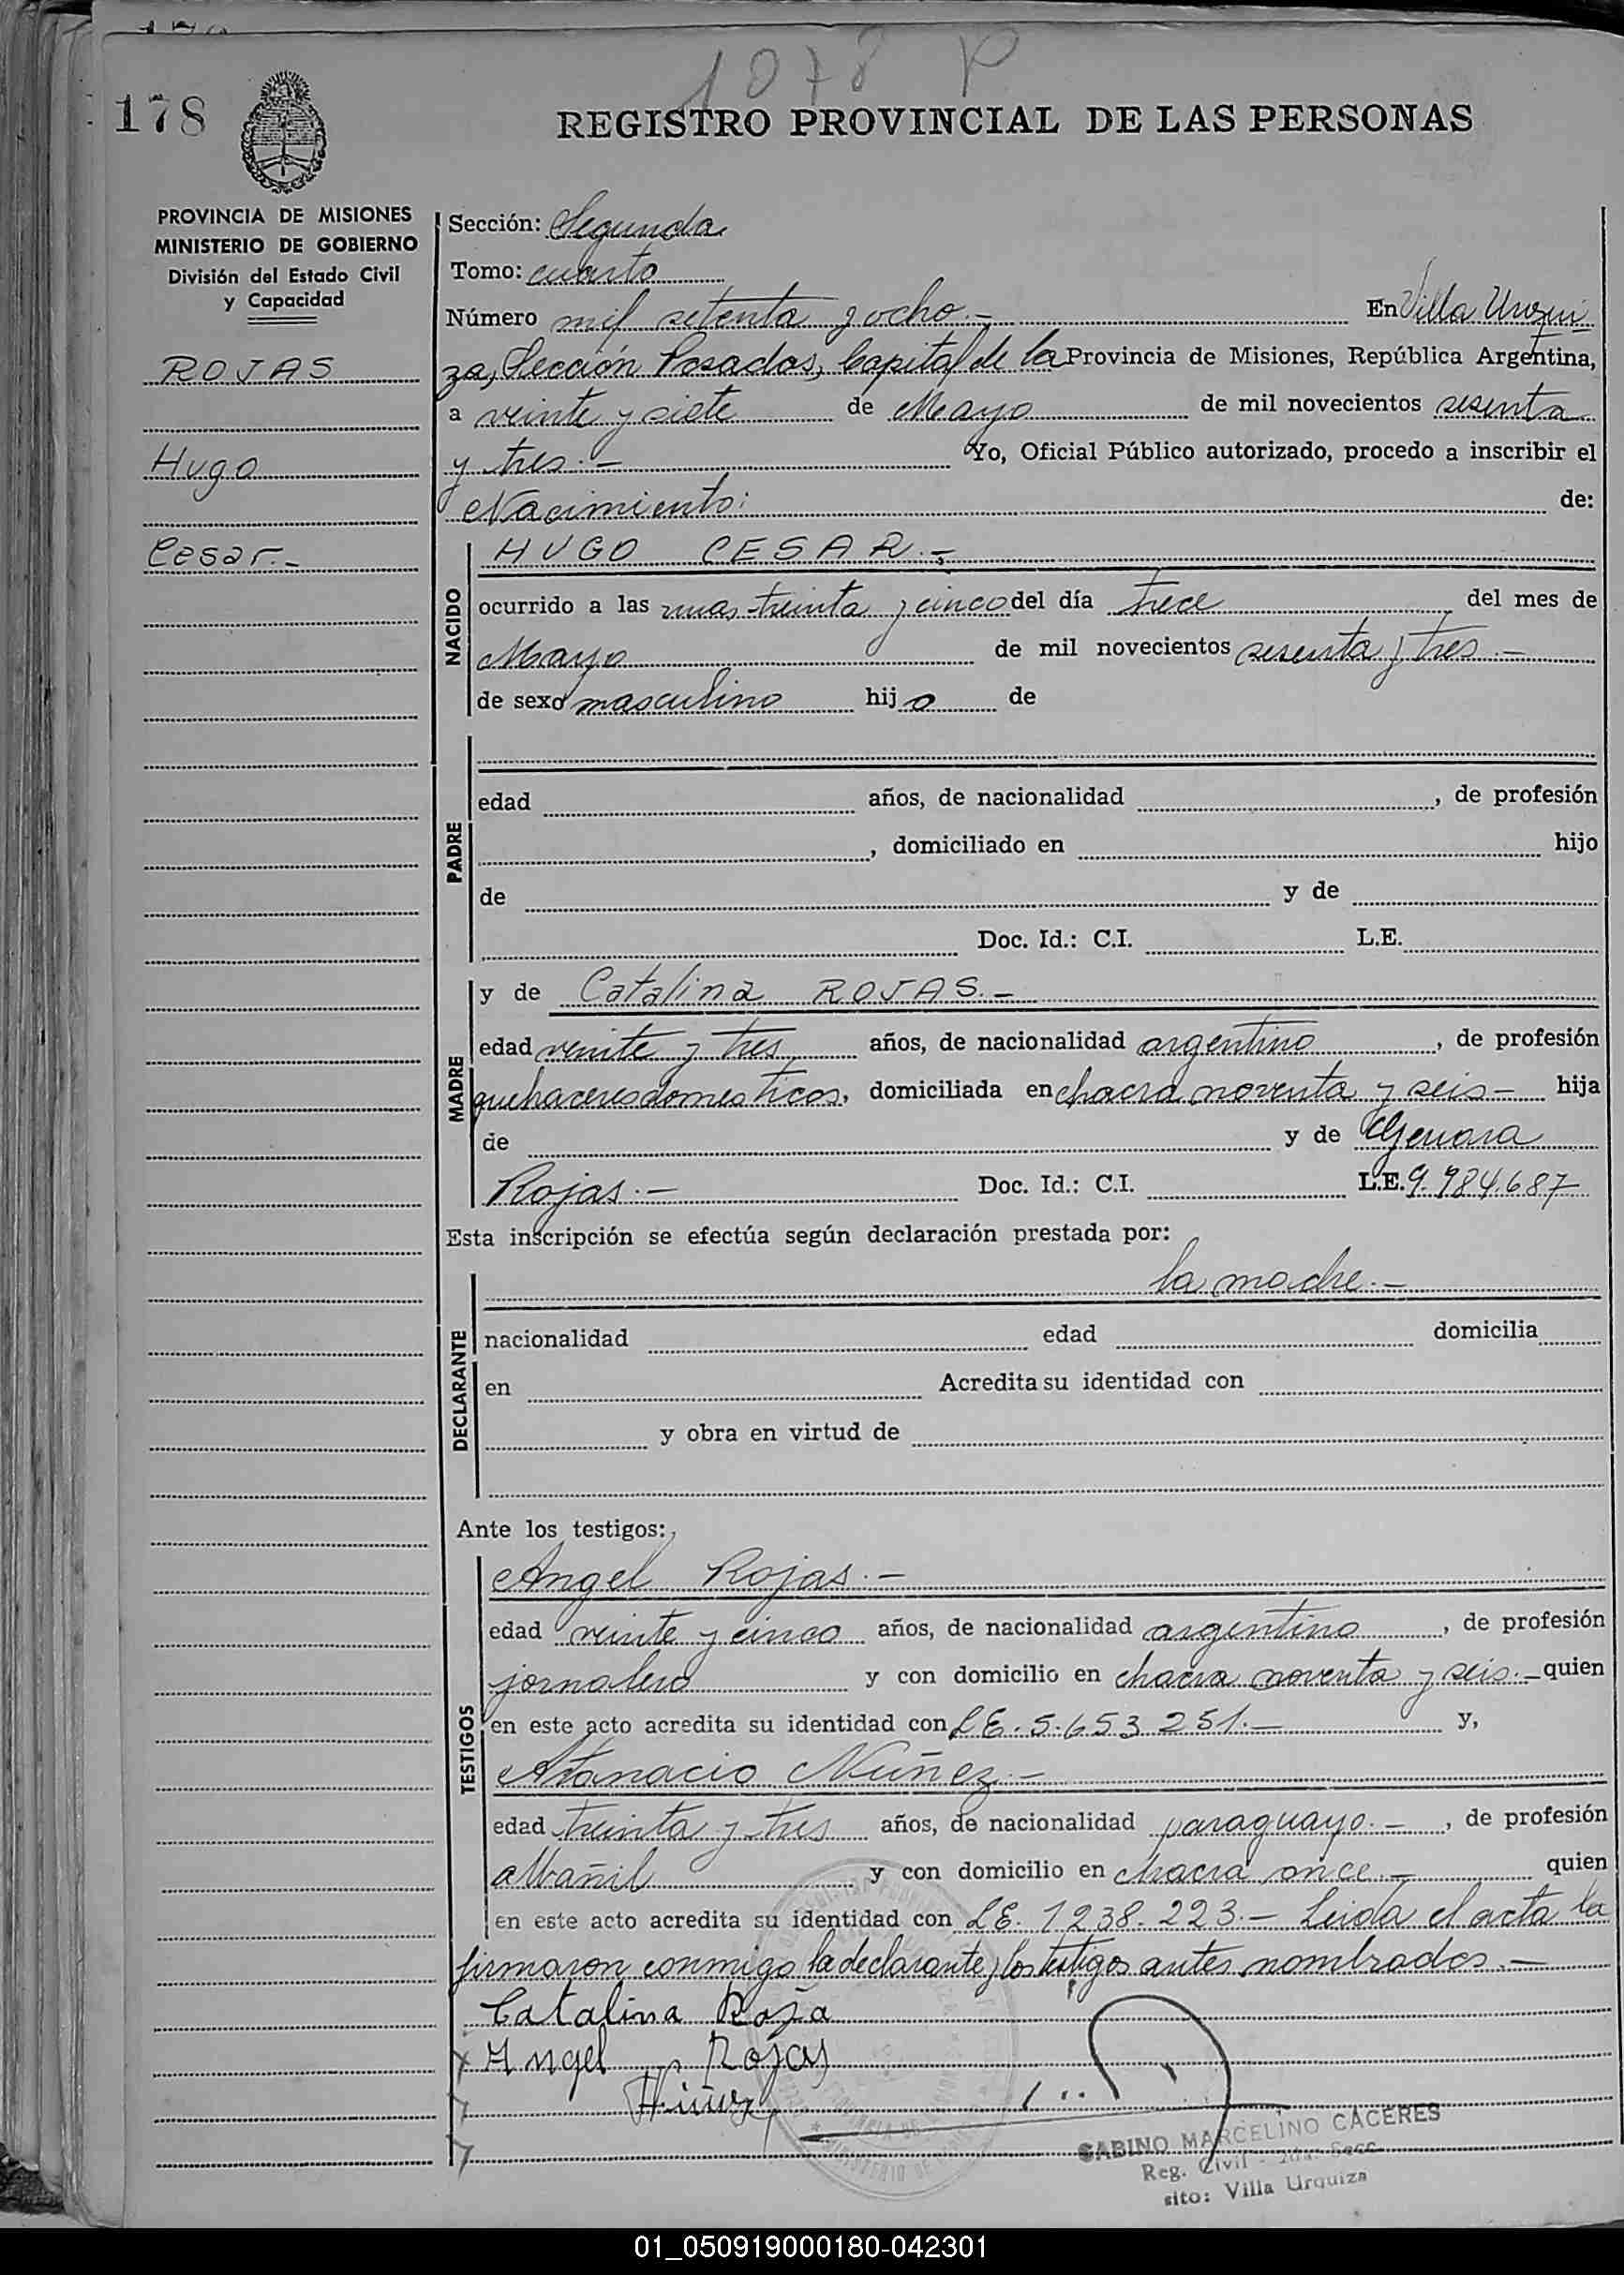 1078 P
178
REGISTRO PROVINCIAL DE LAS PERSONAS
PROVINCIA DE MISIONES
MINISTERIO DE GOBIERNO
División del Estado Civil
y Capacidad
ROJAS
Hugo
Cesar.-
Sección: Segunda
Tomo: cuarto
Número mil setenta y ocho.- En Villa Urqui
za, Sección Posadas, Capital de la Provincia de Misiones, República Argentina,
a veinte y siete de Mayo de mil novecientos sesenta
y tres.- Yo, Oficial Público autorizado, procedo a inscribir el
Nacimiento: de:
NACIDO
HUGO CESAR.-
ocurrido a las unas treinta y cinco del día trece del mes de
Mayo de mil novecientos sesenta y tres.-
de sexo masculino hijo de
PADRE
edad años, de nacionalidad , de profesión
, domiciliado en hijo
de y de
Doc. Id.: C.I. L.E.
MADRE
y de Catalina ROJAS.-
edad veinte y tres años, de nacionalidad argentino , de profesión
quehaceres domesticos, domiciliada en chacra noventa y seis- hija
de y de Genara
Rojas.- Doc. Id.: C.I. L.E. 9.984.687
Esta inscripción se efectúa según declaración prestada por:
DECLARANTE
la madre.-
nacionalidad edad domicilia
en Acredita su identidad con
y obra en virtud de
Ante los testigos:
TESTIGOS
Angel Rojas.-
edad veinte y cinco años, de nacionalidad argentino , de profesión
jornalero y con domicilio en chacra noventa y seis.- quien
en este acto acredita su identidad con L.E. 5.653.251.- y,
Atanacio Nuñez.-
edad treinta y tres años, de nacionalidad paraguayo.- , de profesión
albañil y con domicilio en chacra once.- quien
en este acto acredita su identidad con L.E. 1238.223.- Leida el acta la
firmaron conmigo la declarante y los testigos antes nombrados.-
Catalina Roja
Angel Rojas
Nuñez
SABINO MARCELINO CACERES
Reg. Civil - 2da. Secc
sito: Villa Urquiza
01_050919000180-042301